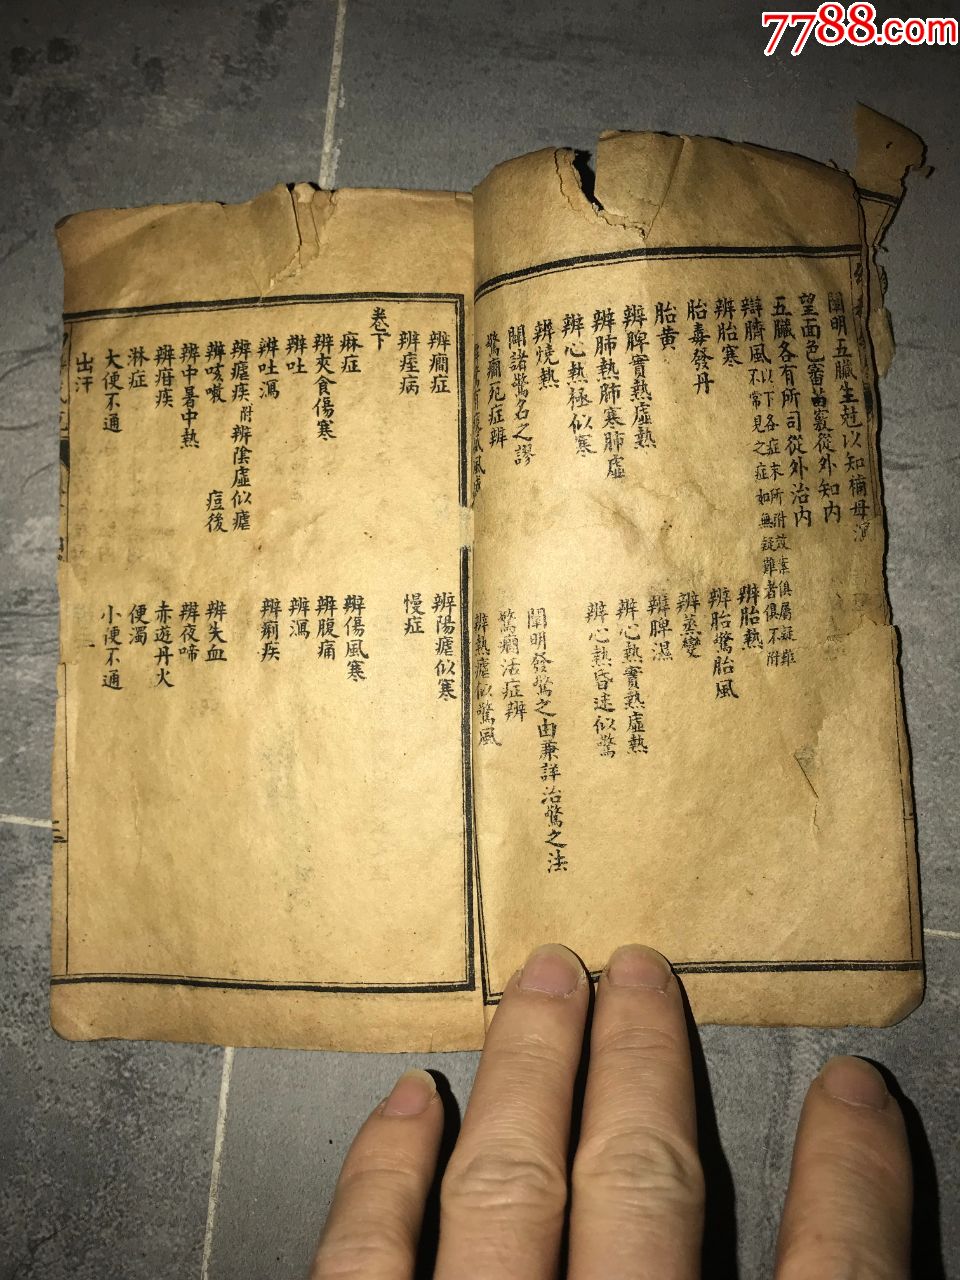 7788.com
闡明五臟生尅以知補母瀉
望面色審苗竅從外知內
五臟各有所司從外治內
辯臍風以下各症末所附設案俱屬疑難
不常見之症如無疑難者俱不附
辨胎寒
辨胎熱
胎毒發丹
辨胎驚胎風
胎黃
辨蒸變
辨脾實熱虛熱
辨脾濕
辨肺熱肺寒肺虛
辨心熱實熱虛熱
辨心熱極似寒
辨心熱昏迷似驚
辨燒熱
闢諸驚名之謬
闡明發驚之由兼詳治驚之法
驚癎死症辨
驚癎法症辨
辨熱瘧似驚風
辨癎症
辨陽瘧似寒
辨痙病
慢症
卷下
麻症
辨傷風寒
辨夾食傷寒
辨腹痛
辨吐
辨瀉
辨吐瀉
辨痢疾
辨瘧疾附辨陰虛似瘧
辨咳嗽
痘後
辨失血
辨中暑中熱
辨夜啼
辨疳疾
赤遊丹火
淋症
便濁
大便不通
小便不通
出汗
二